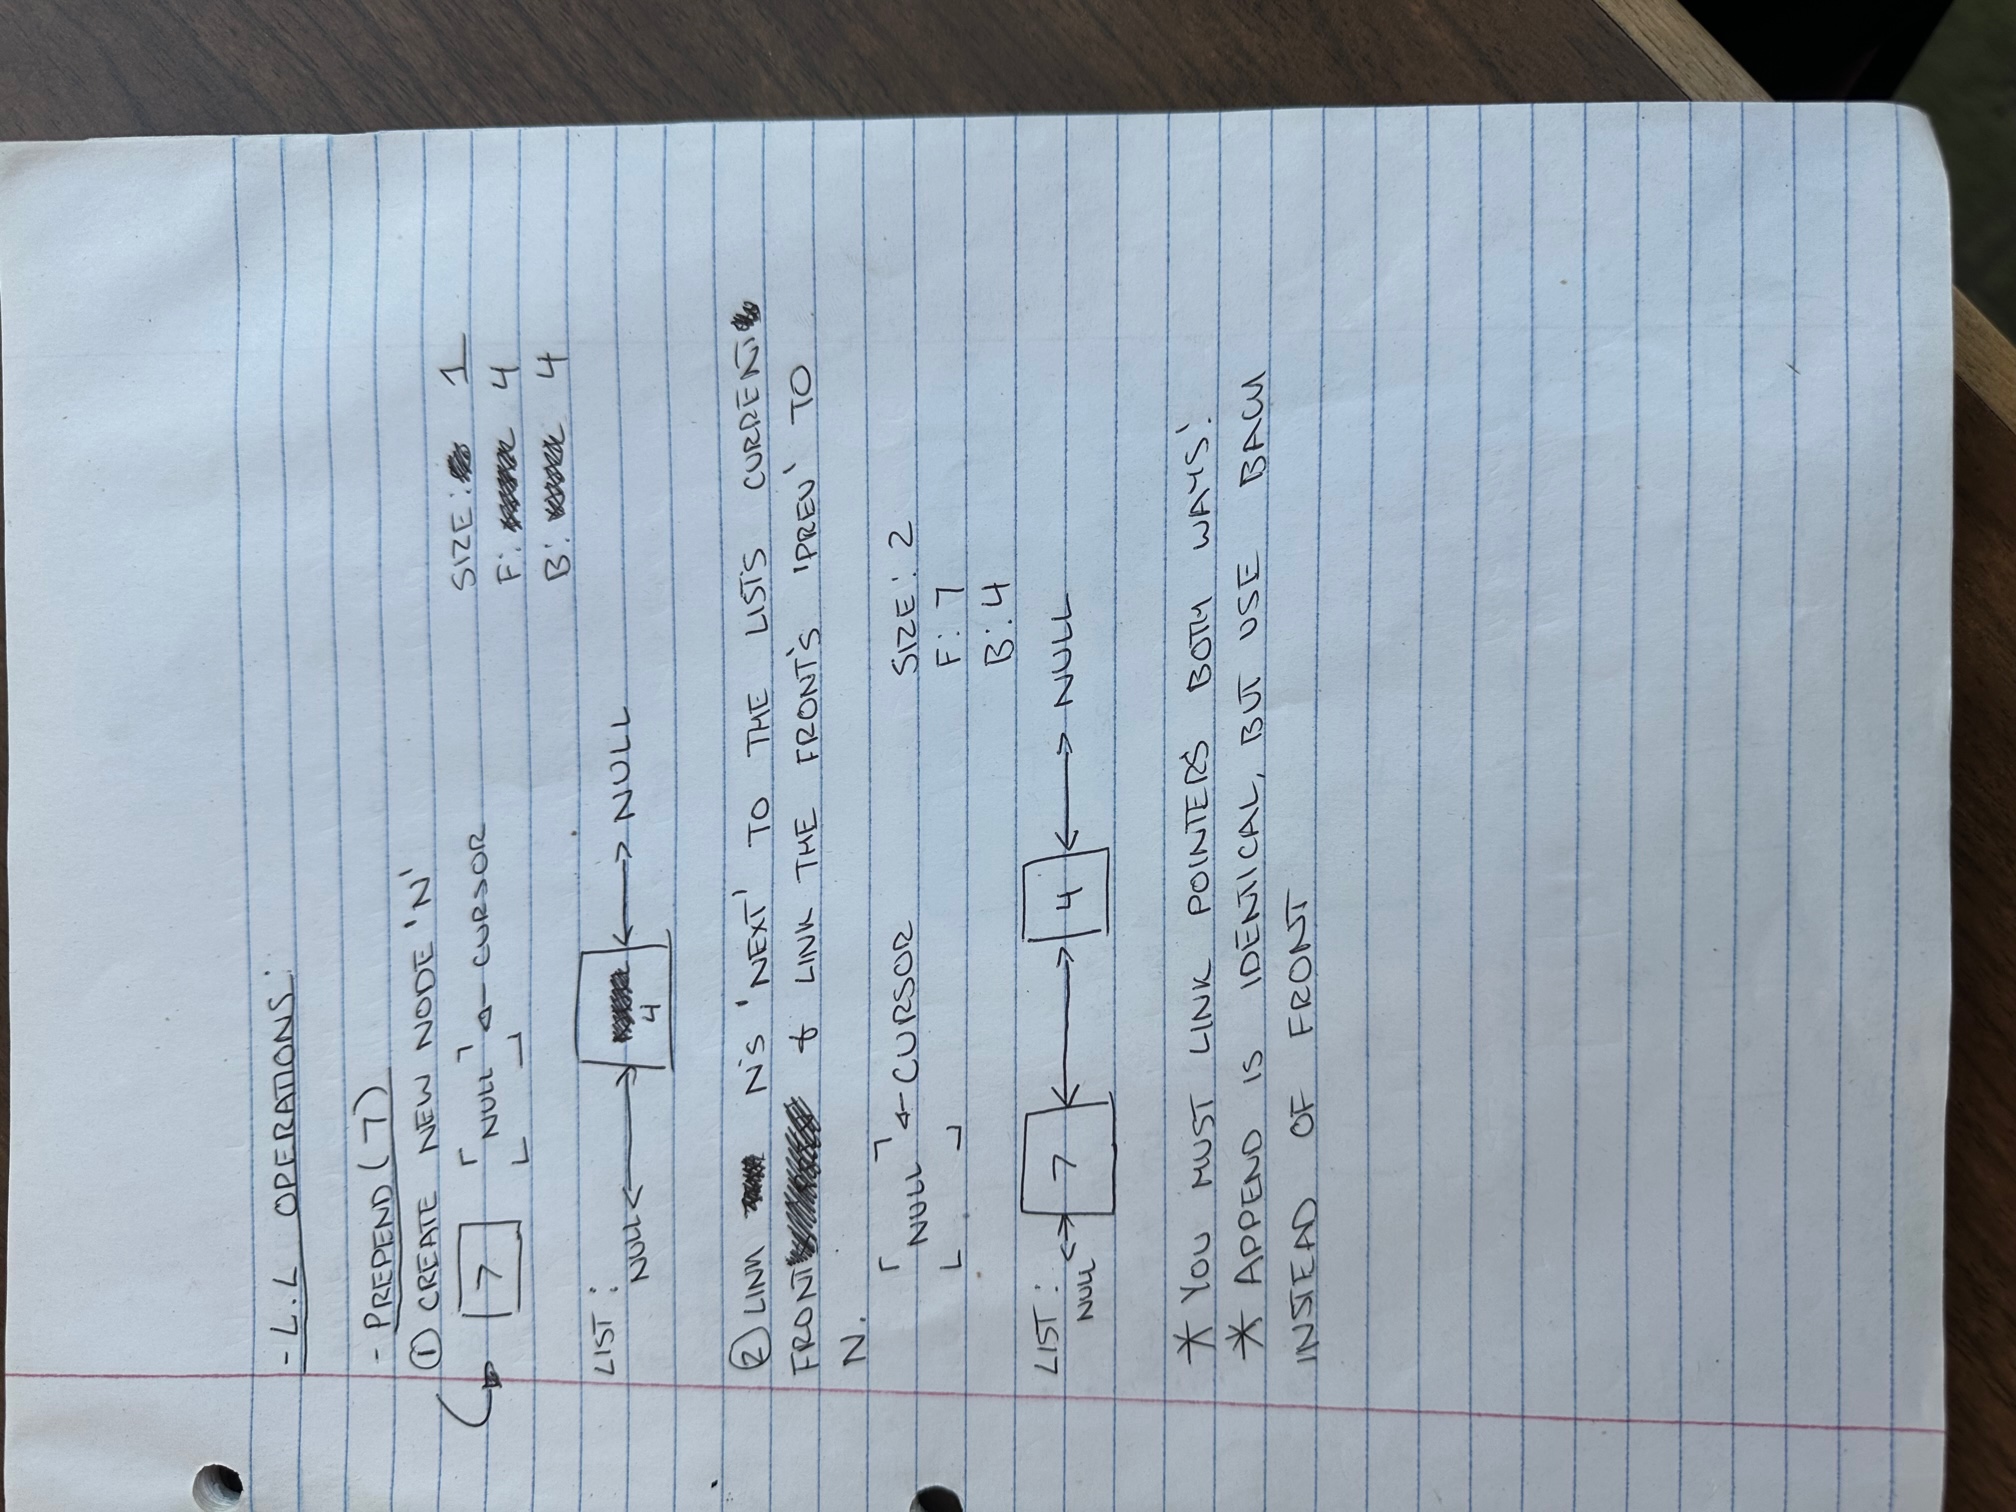 - L.L OPERATIONS:
- PREPEND(7)
① CREATE NEW NODE 'N'
7 NULL ← CURSOR
SIZE: 1
F: 4
B: 4
LIST:
NULL ↔ 4 ↔ NULL
② LINK N'S 'NEXT' TO THE LIST'S CURRENT
FRONT & LINK THE FRONT'S 'PREV' TO
N.
NULL ← CURSOR
SIZE: 2
F: 7
B: 4
LIST:
NULL ↔ 7 ↔ 4 ↔ NULL
* YOU MUST LINK POINTERS BOTH WAYS!
* APPEND IS IDENTICAL, BUT USE BACK
INSTEAD OF FRONT